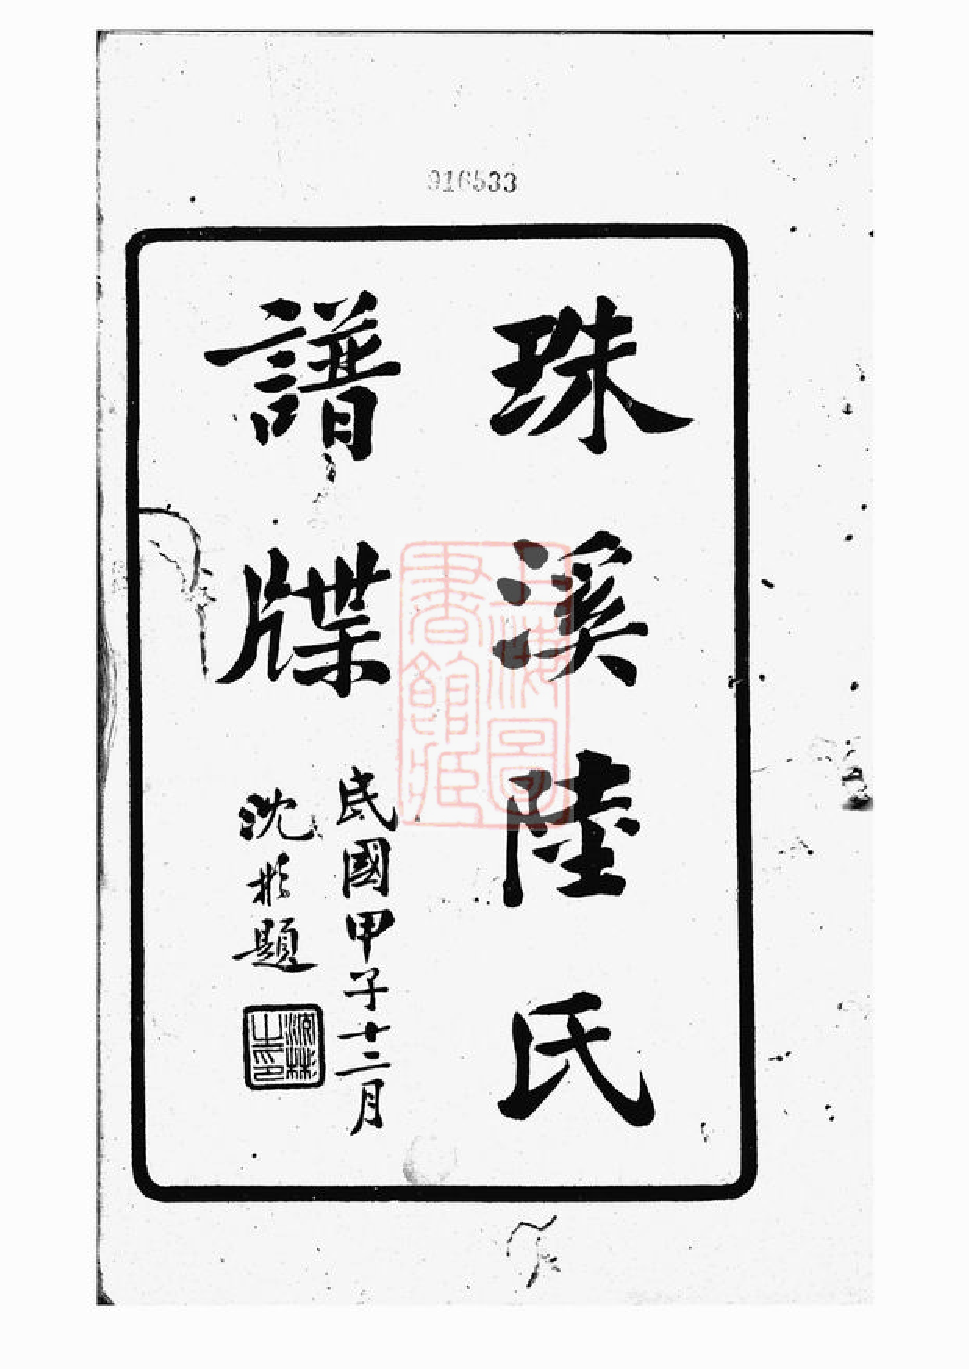 916533
珠溪陸氏
譜牒
民國甲子十二月
沈彬題
沈彬之印
上海圖書館藏